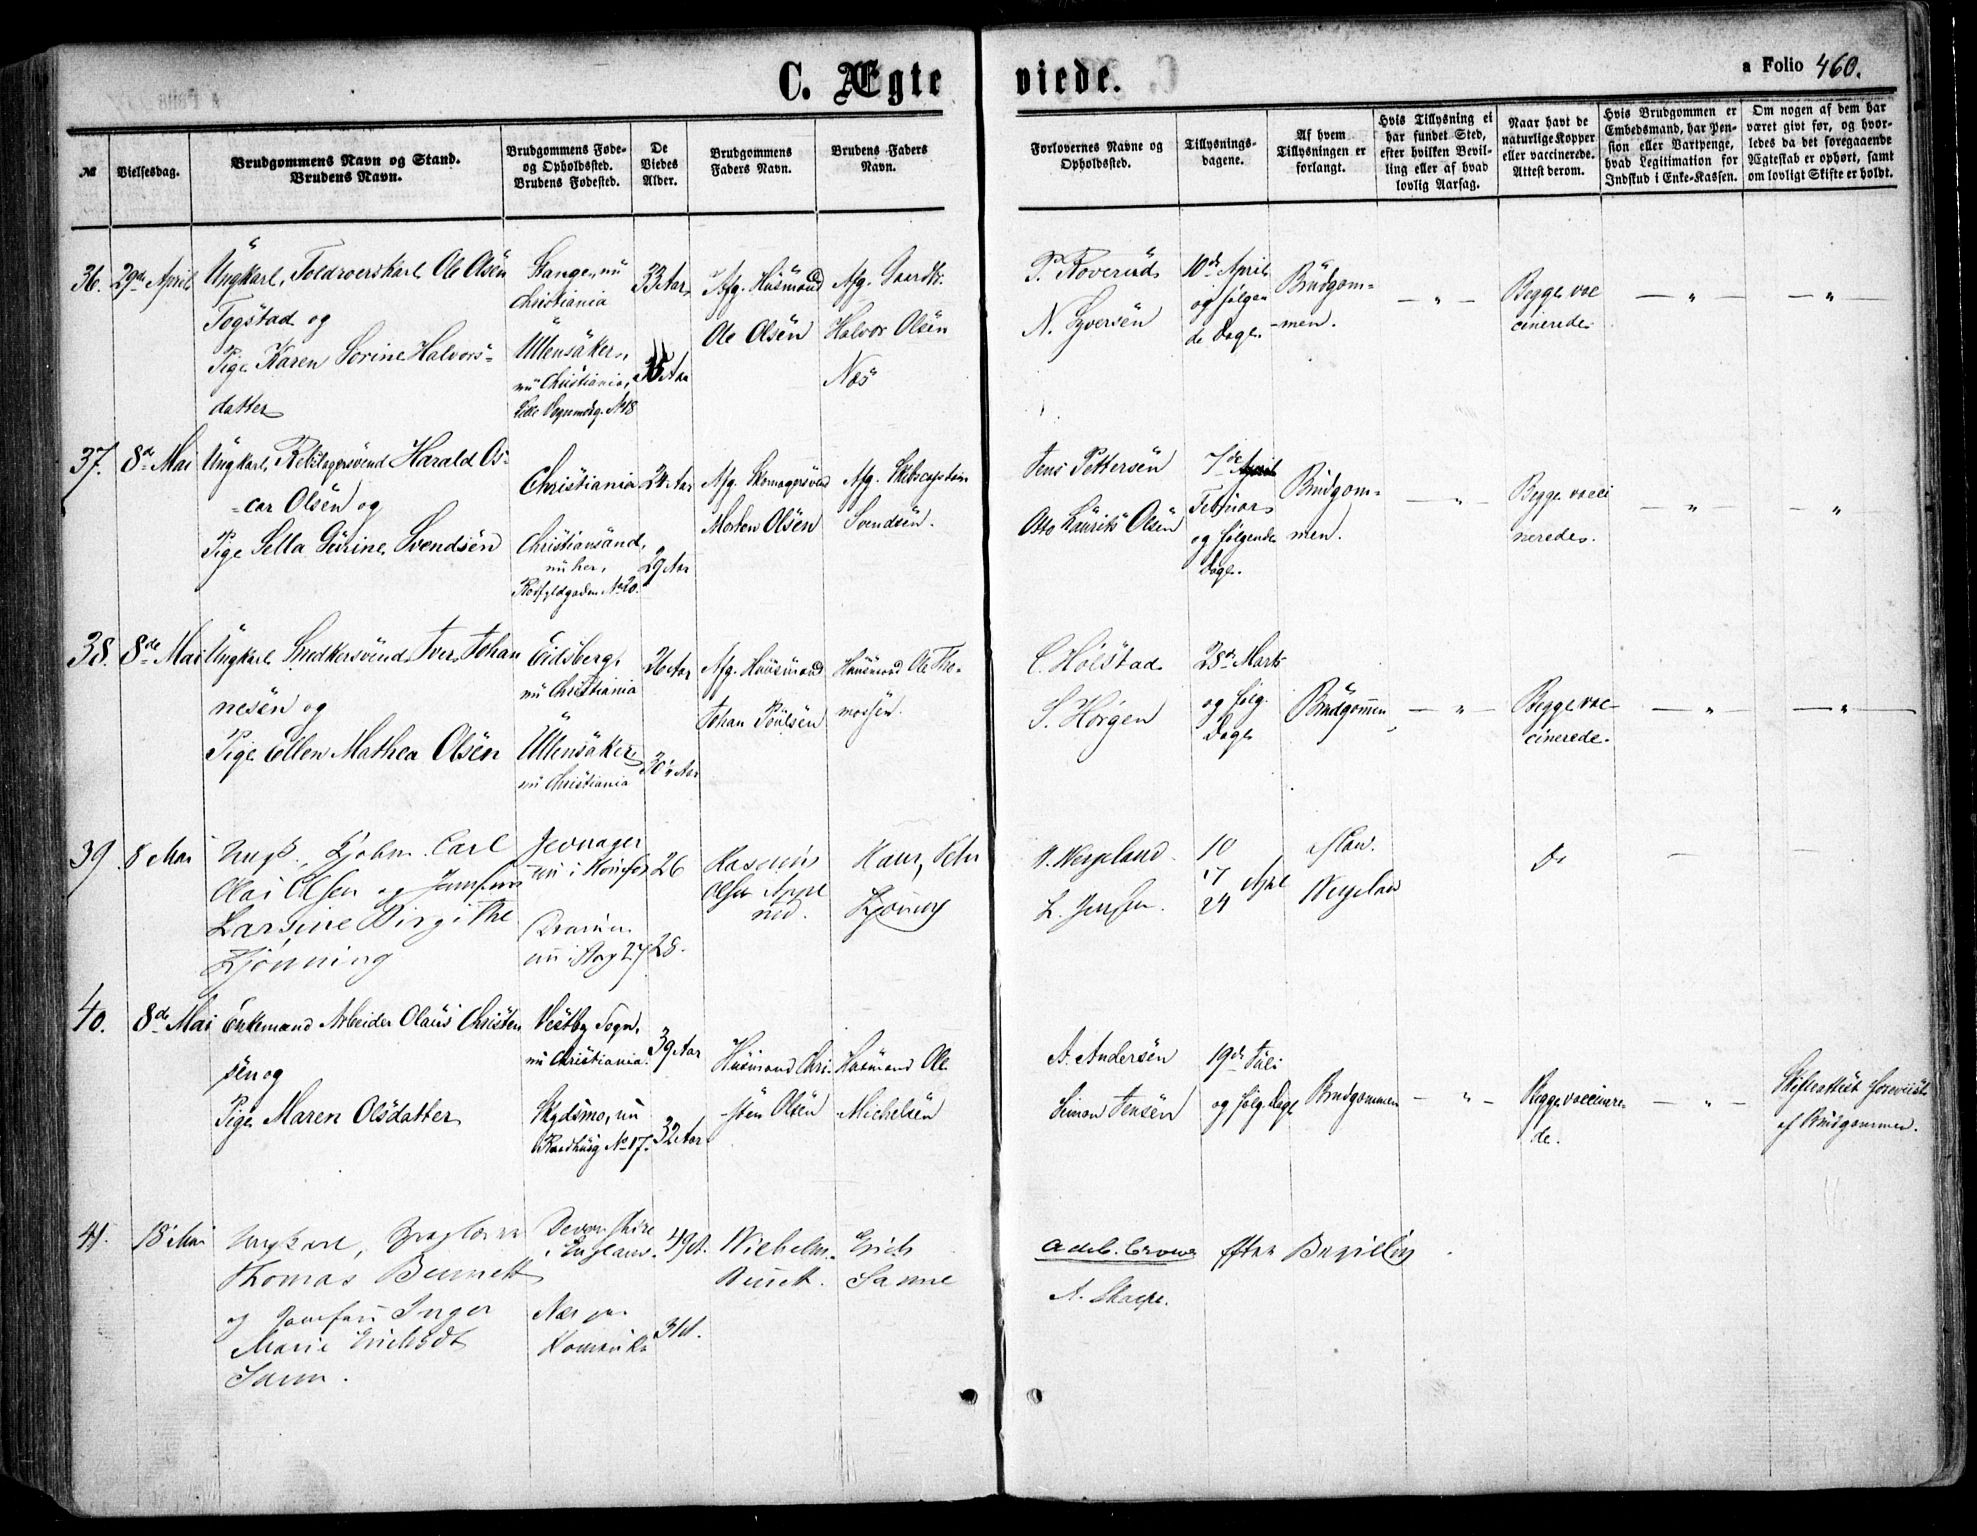 C. Ægte viede.
a Folio 460.
№
Vielsesdag.
Brudgommens Navn og Stand.
Brudens Navn.
Brudgommens Føde-
og Opholdssted.
Brudens Fødested.
De
Viedes
Alder.
Brudgommens
Faders Navn.
Brudens Faders
Navn.
Forlovernes Navne og
Opholdssted.
Tillysnings-
dagene.
Af hvem
Tillysningen er
forlangt.
Hvis Tillysning ei
har fundet Sted,
efter hvilken Bevil-
ling eller af hvad
lovlig Aarsag.
Naar havt de
naturlige Kopper
eller vaccinerede.
Attest derom.
Hvis Brudgommen er
Embedsmand, har Pen-
sion eller Vartpenge,
hvad Legitimation for
Indskud i Enke-Kassen.
Om nogen af dem har
været givt før, og hvor-
ledes da det foregaaende
Ægteskab er ophørt, samt
om lovligt Skifte er holdt.
36. 29de April
Ungkarl, Toldroerskarl Ole Olsen
Togstad og
Pige Karen Sorine Halvors-
datter
Stange, nu
Christiania
Ullensaker,
nu Christiania,
Lille Vognmdg. No 18
33 Aar
35 Aar
Afg. Husmand
Ole Olsen
Afg. Gaardbr.
Halvor Olsen
Næs
P. Roverud
N. Syversen
10de April
og følgen
de Dage.
Brudgom-
men.
— " —
Begge vac
cinerede
— " —
— " —
37. 8de Mai
Ungkarl, Rebslagersvend Harald Os-
car Olsen og
Pige Sella Gurine Svendsen
Christiania
Christiansand,
nu her,
No 20.
24 Aar
29 Aar
Afg. Skomagersvend
Morten Olsen
Afg. Skibscaptain
Svendsen.
Jens Pettersen
Otto Lauritz Olsen
7de April
Februar
og følgende
Dage.
Brudgom-
men.
— " —
Begge vacci
nerede.
— " —
— " —
38. 8de Mai
Ungkarl Snedkersvend Iver Johan
nesen og
Pige Ellen Mathea Olsen
Eidsberg,
nu Christiania
Ullensaker
nu Christiania
26 Aar
30 Aar
Afg. Huusmand
Johan Poulsen
Huusmand Ole Tho-
massen.
C. Holstad
S. Horgen
28de Marts
og følg.
Dage
Brudgommen
— " —
Begge vac-
cinerede.
— " —
— " —
39. 8 Mai
Ungk., Carl
Olai Olsen og Jomfru
Larsine Birgithe
Kjønning
Jevnager
Drammen
27
26
28.
Rasmus
Olsen
Hans Peter
Kjønning
Wergeland
L. Jensen.
10
17
24
April
Wergeland
Do
—
—
40. 8de Mai
Enkemand Arbeider Olaus Christen
sen og
Pige Maren Olsdatter
Vestby Sogn,
nu Christiania.
Skydsmo, nu
Raadhusg No 17.
39 Aar
32 Aar
Husmand Chri-
sten Olsen
Husmand Ole
Michelsen
A. Andersen
Simon Jensen
19de Juli
og følg. Dage
Brudgommen
— " —
Begge vaccinere-
de.
— " —
Skifteattest foreviist
af Brudgommen.
41. 18 Mai
Ungkarl,
Thomas Bennett
og Jomfru Inger
Marie
Devonshire
i England.
Nær paa
Romerike
49 A.
31 A.
Wilhelm
Erich
Sanne
A. Sharpe.
Efter Bevilling